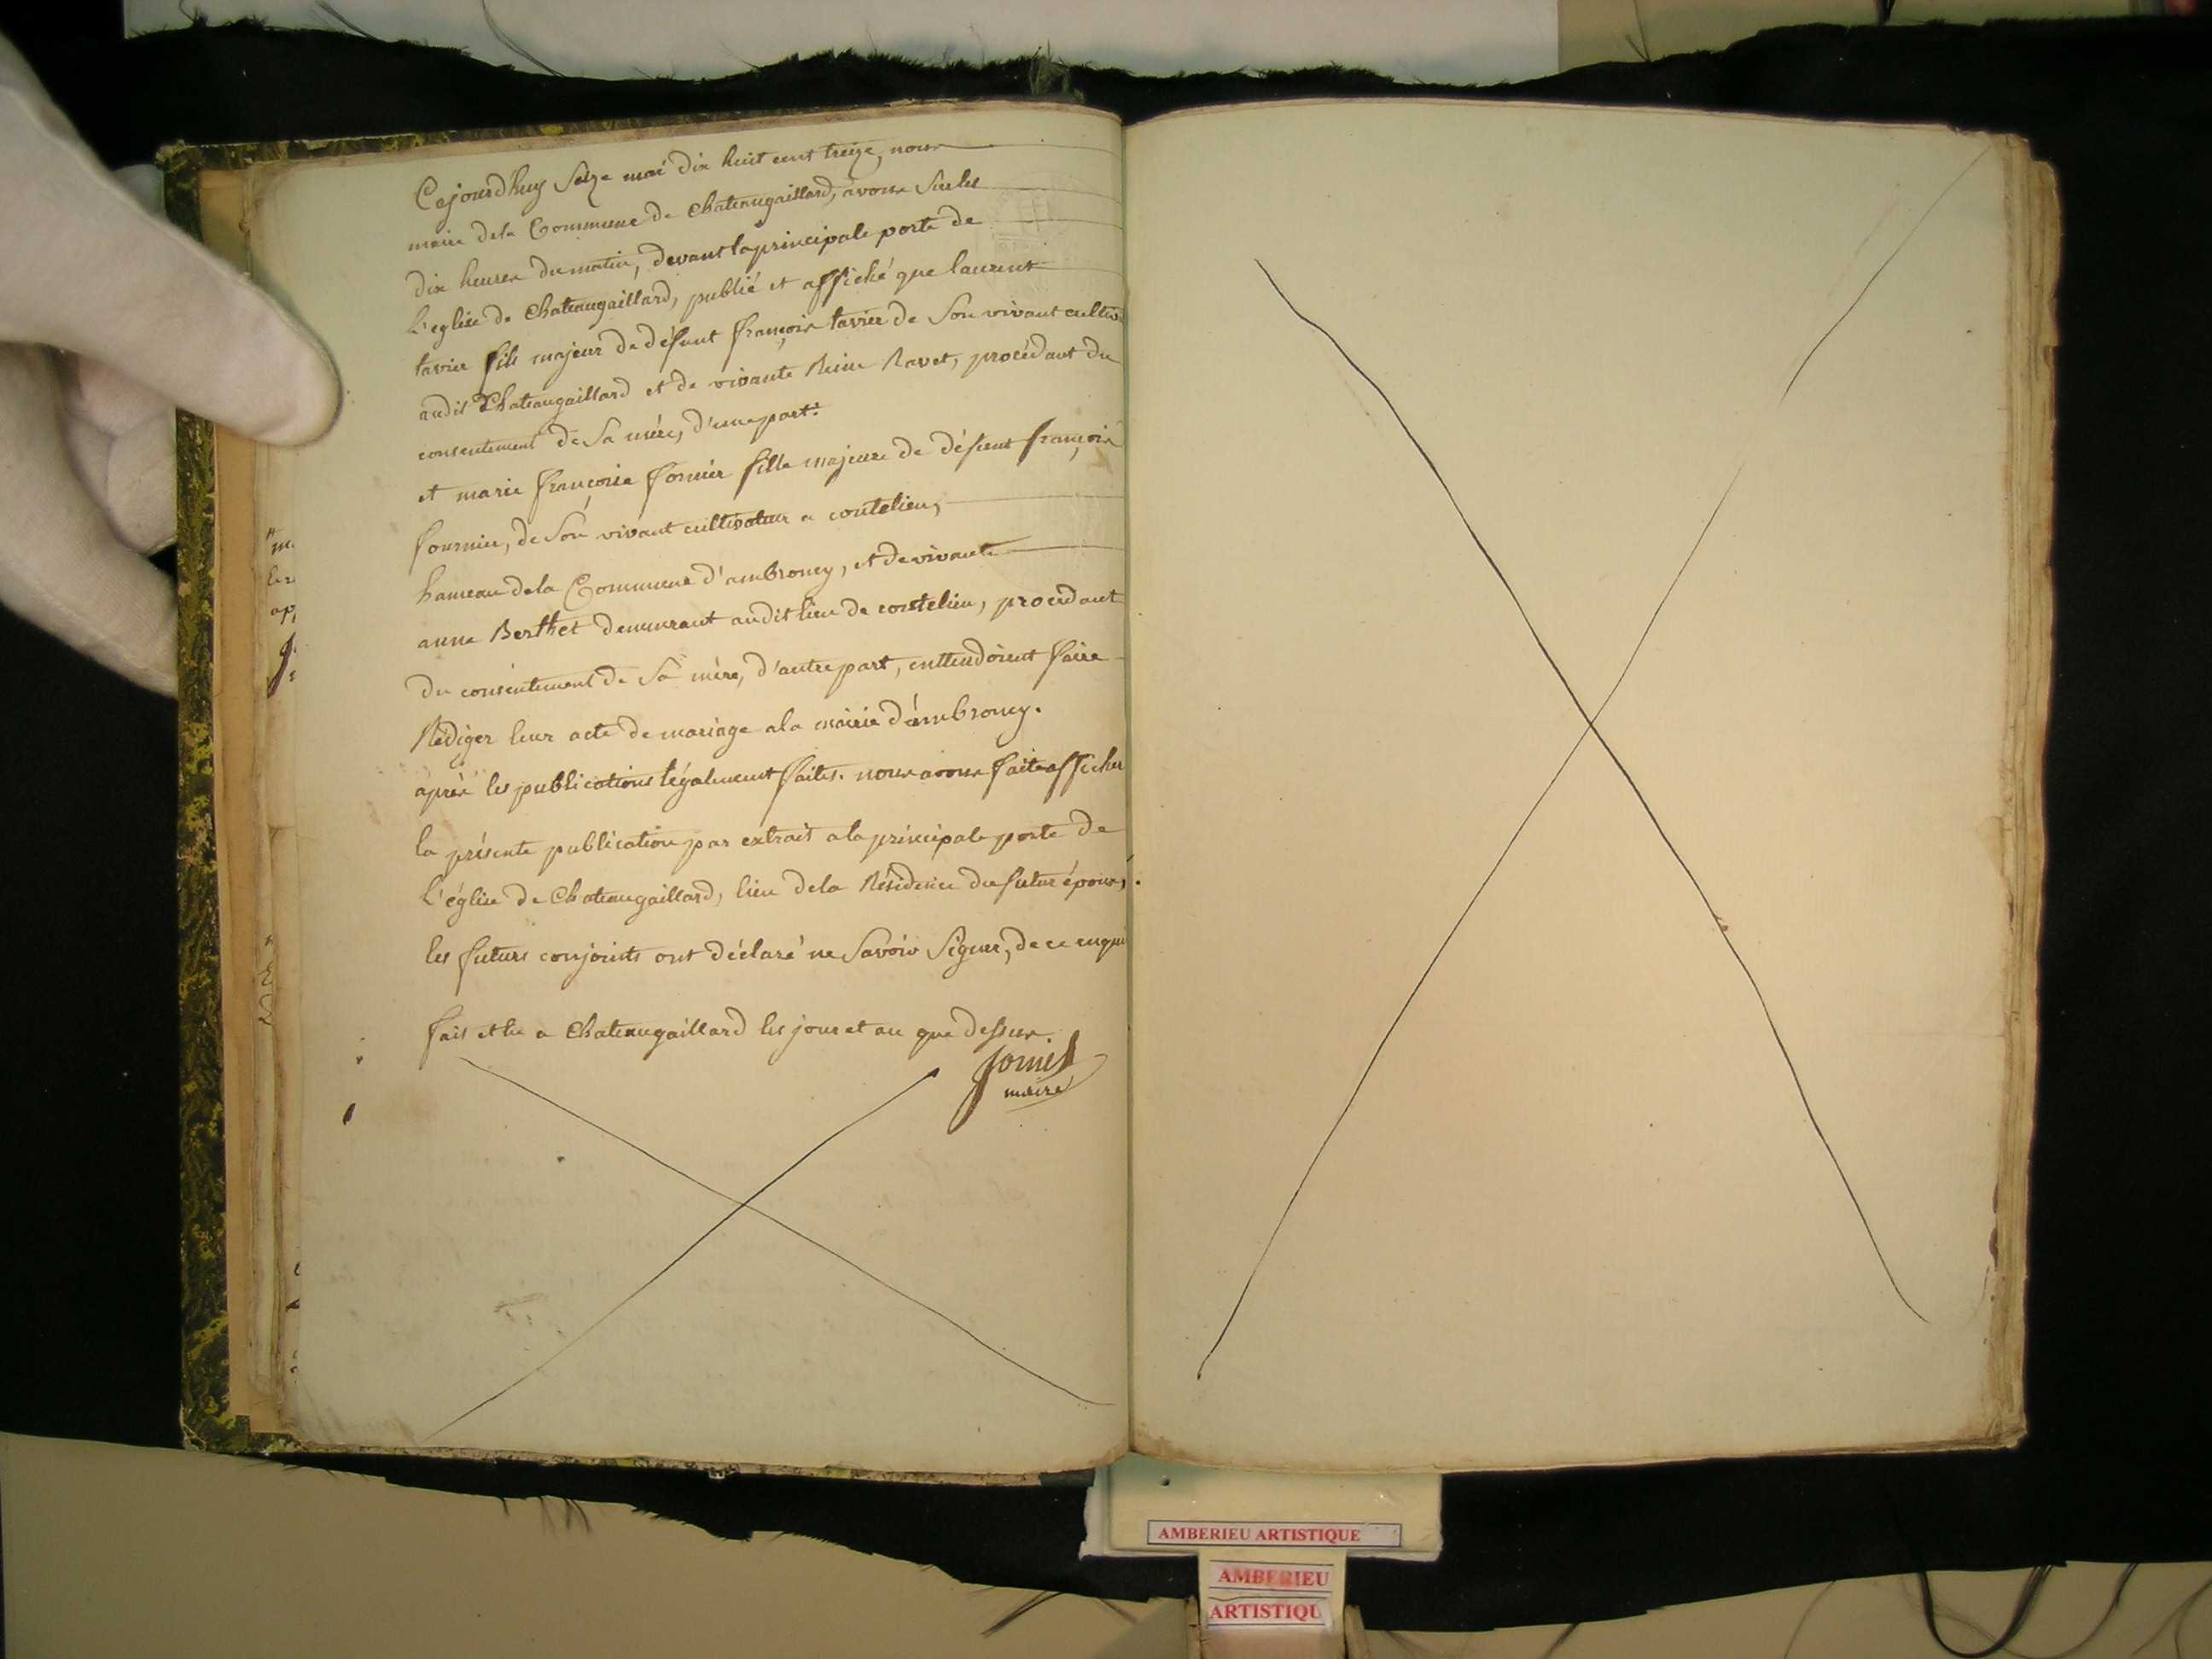 Cejourd'huy Seize mai dix huit cent treize, nous
maire dela Commune de Chateaugaillard, avons Surles
dix heures dumatin, devant laprincipale porte de
L'eglise de Chateaugaillard, publié et affiché que laurent
tavier fils majeur de défunt françois tavier de Son vivant cultiv
audit Chateaugaillard et de vivante Reine Ravet, procédant du
consentement de Sa mère, d'une part.
et marie françoise fornier fille majeure de défunt françois
fournier, de Son vivant cultivateur a coutelieu,
hameau dela Commune d'ambroney, et de vivante
anne Berthet demeurant audit lieu de coutelieu, procédant
du consentement de Sa mère, d'autre part, enttendoient faire
Rédiger leur acte de mariage ala mairie d'ambroney.
après les publications légalement faites. nous avons fait afficher
la présente publication par extrait ala principale porte de
L'église de Chateaugaillard, lieu dela Résidence du futur époux,
les futurs conjoints ont déclaré ne Savoir Signer, de ce enqui
fait et lu a Chateaugaillard les jour et an que dessus.
maire
AMBERIEU ARTISTIQUE
AMBERIEU
ARTISTIQU